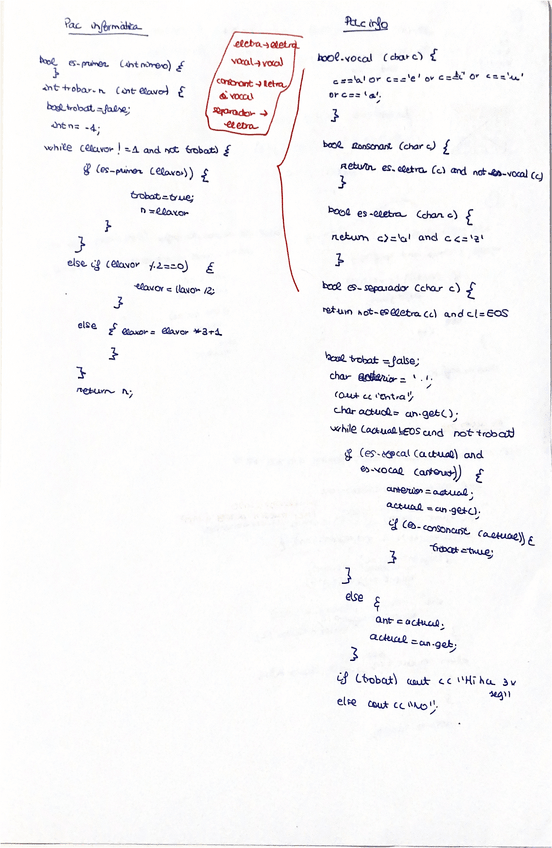 Pac informàtica
bool es-primer (int número) {
}
int trobar-n (int llavor) {
bool trobat = false;
int n = -1;
while (llavor != 1 and not trobat) {
if (es-primer (llavor)) {
trobat = true;
n = llavor
}
}
else if (llavor % 2 == 0) {
llavor = llavor / 2;
}
else { llavor = llavor * 3 + 1
}
}
return n;
elletra → elletra
vocal → vocal
consonant → lletra
i vocal
separador →
elletra
Pac info
bool-vocal (char c) {
c == 'a' or c == 'e' or c == 'i' or c == 'u'
or c == 'o';
}
bool consonant (char c) {
return es-lletra (c) and not es-vocal (c)
}
bool es-lletra (char c) {
return c >= 'a' and c <= 'z'
}
bool es-separador (char c) {
return not-es lletra (c) and c != EOS
bool trobat = false;
char anterior = '.';
cout << "entra";
char actual = an.get();
while (actual != EOS and not trobat)
if (es-vocal (actual) and
es-vocal (anterior)) {
anterior = actual;
actual = an.get();
if (es-consonant (actual)) {
trobat = true;
}
}
else {
ant = actual;
actual = an.get;
}
if (trobat) cout << "Hi ha 3 v
seg"
else cout << "No";